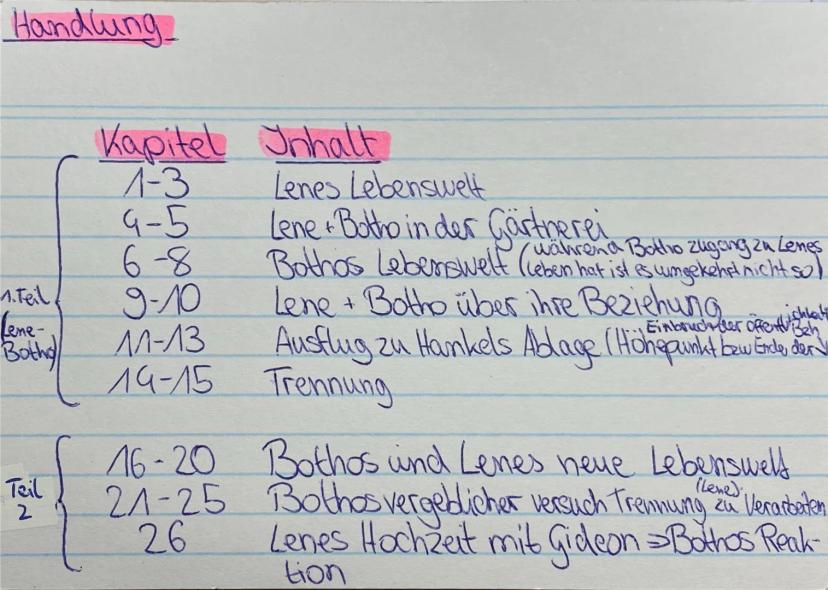 Handlung
Kapitel Inhalt
1-3 Lenes Lebenswelt
4-5 Lene + Botho in der Gärtnerei
6-8 Bothos Lebenswelt (während Botho zugang zu Lenes
Leben hat ist es umgekehrt nicht so)
1. Teil
Lene-
Botho
9-10 Lene + Botho über ihre Beziehung
Einbruch der öffentlichkeit
11-13 Ausflug zu Hankels Ablage (Höhepunkt bzw Ende der Beh
14-15 Trennung
Teil
2
16-20 Bothos und Lenes neue Lebenswelt
21-25 Bothos vergeblicher versuch Trennung (Lene) zu Verarbeiten
26 Lenes Hochzeit mit Gideon ⇒ Bothos Reak-
tion